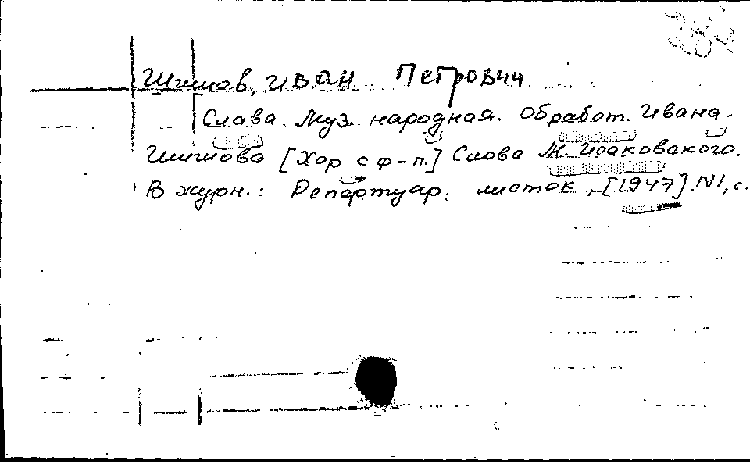 Шишов, Иван Петрович
Слава. Муз. народная. Обработ. Ивана
Шишова [Хор с ф-п.] Слова М. Исаковского.
В журн.: Репертуар. листок, [1947] N1, с.